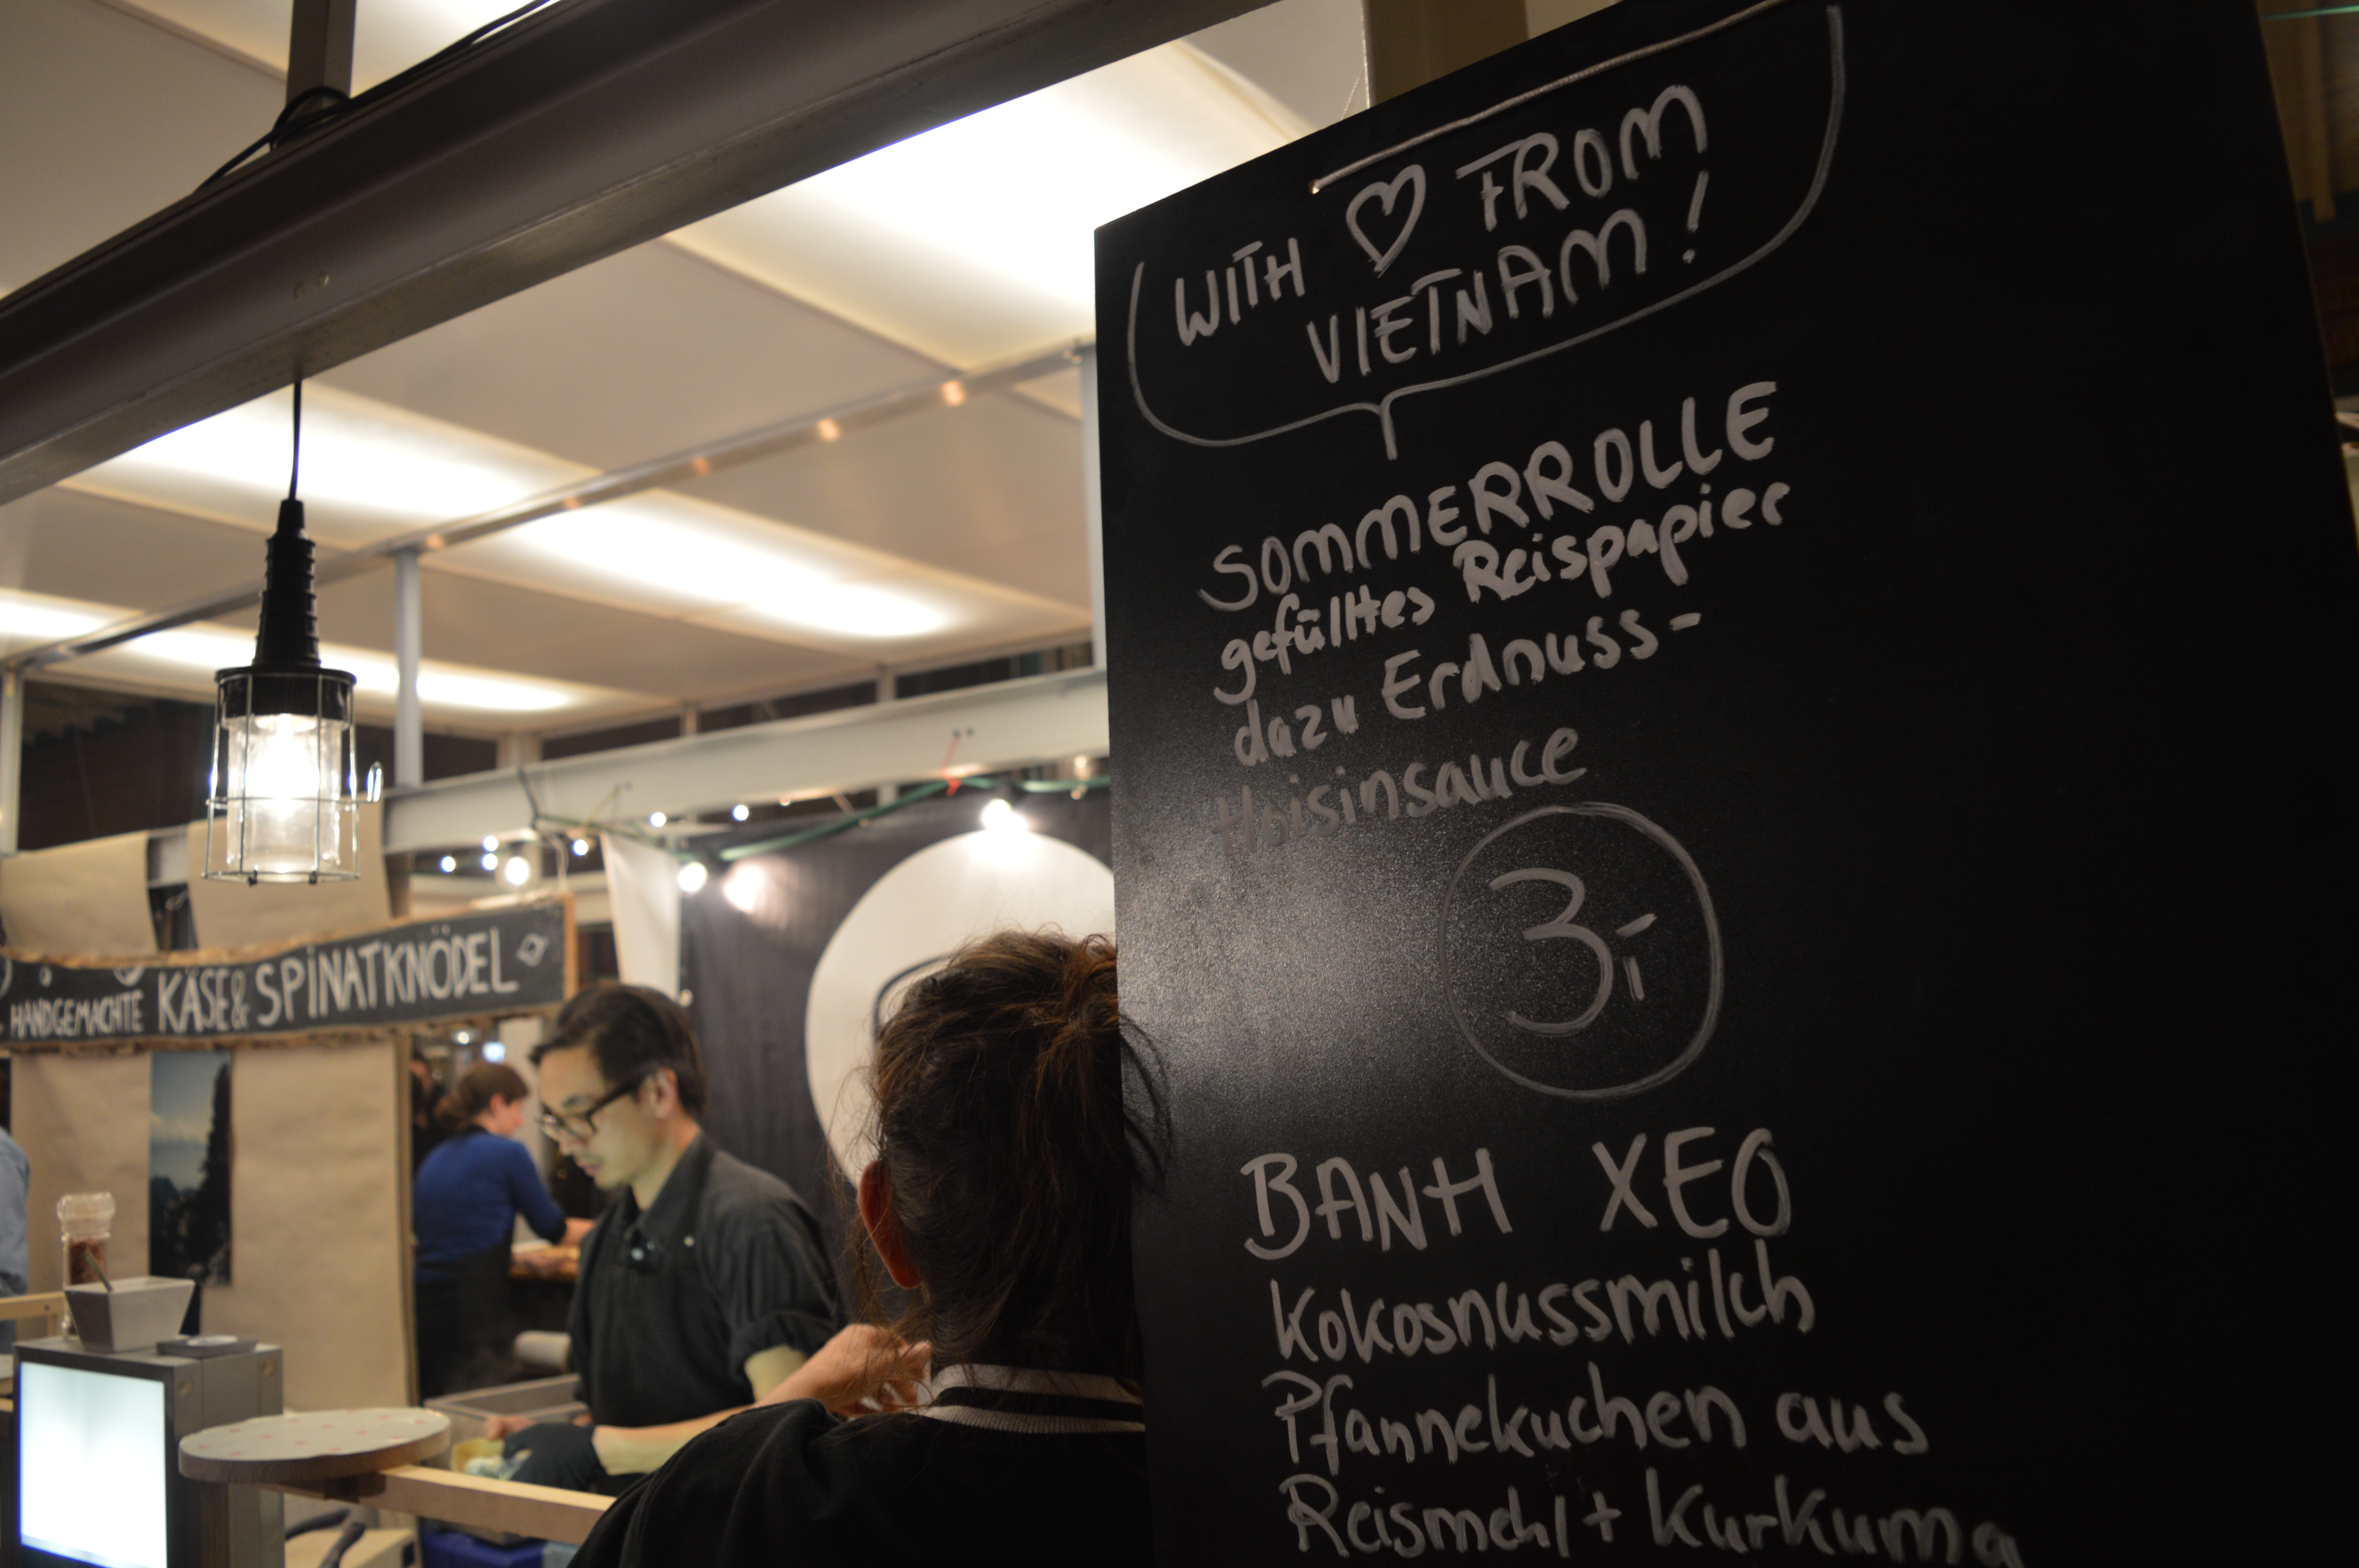 WITH ♡ FROM
VIETNAM!
SOMMERROLLE
gefülltes Reispapier
dazu Erdnuss-
Hoisinsauce
3,-
BANH XEO
Kokosnussmilch
Pfannekuchen aus
Reismehl + Kurkuma
HANDGEMACHTE KÄSE & SPINATKNÖDEL